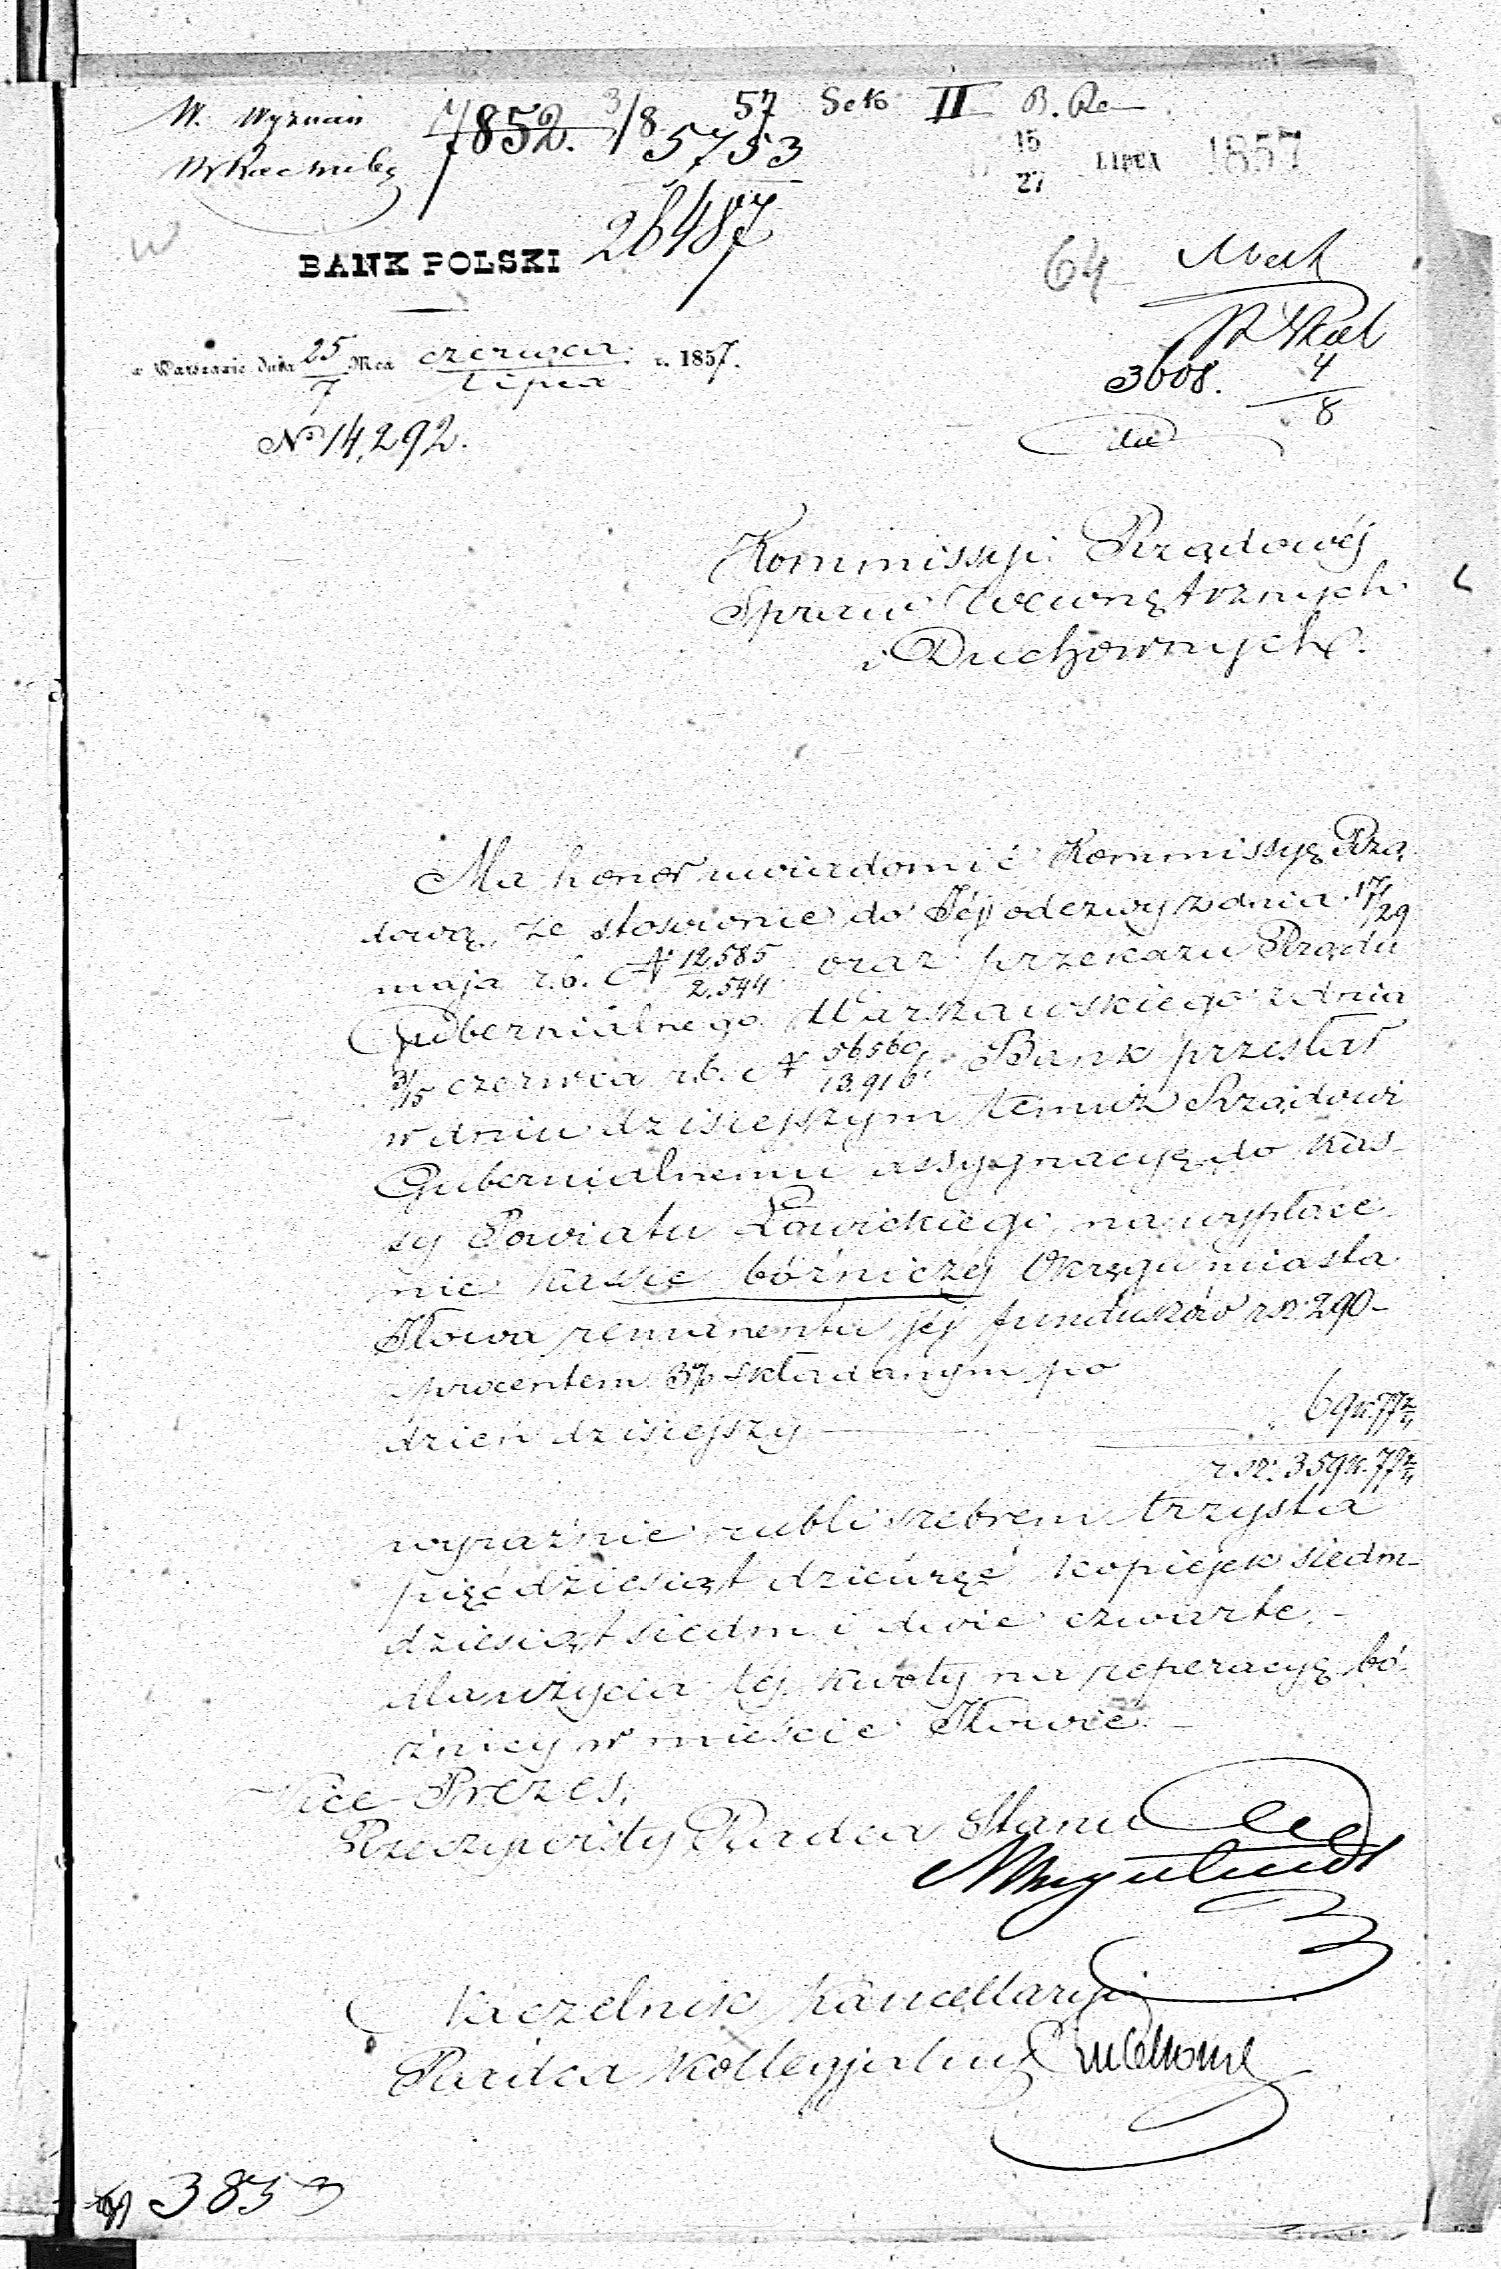 W. Wyznań 7852. 3/8 57 Sek II B. Ra
5753
15
27 LIPCA 1857
26487
BANK POLSKI
64
w Warszawie dnia 25/7 Mca czerwca/Lipca r. 1857.
3608. 4/8
№ 14,292.
Kommissyi Rządowéj
Spraw Wewnętrznych
i Duchownych.
Ma honor uwiadomić Kommissyę Rzą
dową, że stosownie do Jéj odezwy z dnia 17/29
maja r.b. № 12,585/2,544 oraz przekazu Rządu
Gubernialnego Warszawskiego z dnia
3/15 czerwca r.b. № 56560/13,916. Bank przesłał
w dniu dzisiejszym temuż Rządowi
Gubernialnemu assygnacyę do Kas-
sy Powiatu Łowickiego, na wypłace
nie kassie bóźniczéj Okręgu miasta
Iłowa remanentu jéj funduszów rsr. 290-
z procentem 3% składanym po
dzień dzisiejszy — 69 k. 77 2/4
rsr. 359 k. 77 2/4
wyraźnie rubli srebrem trzysta
pięćdziesiąt dziewięć kopiejek siedm-
dziesiąt siedm i dwie czwarte,-
dla użycia téj kwoty na reperacyę bó-
źnicy w mieście Iłowie.-
Vice-Prezes,
Rzeczywisty Radca Stanu
Naczelnik Kancellaryi
Radca Kollegjalny
3853